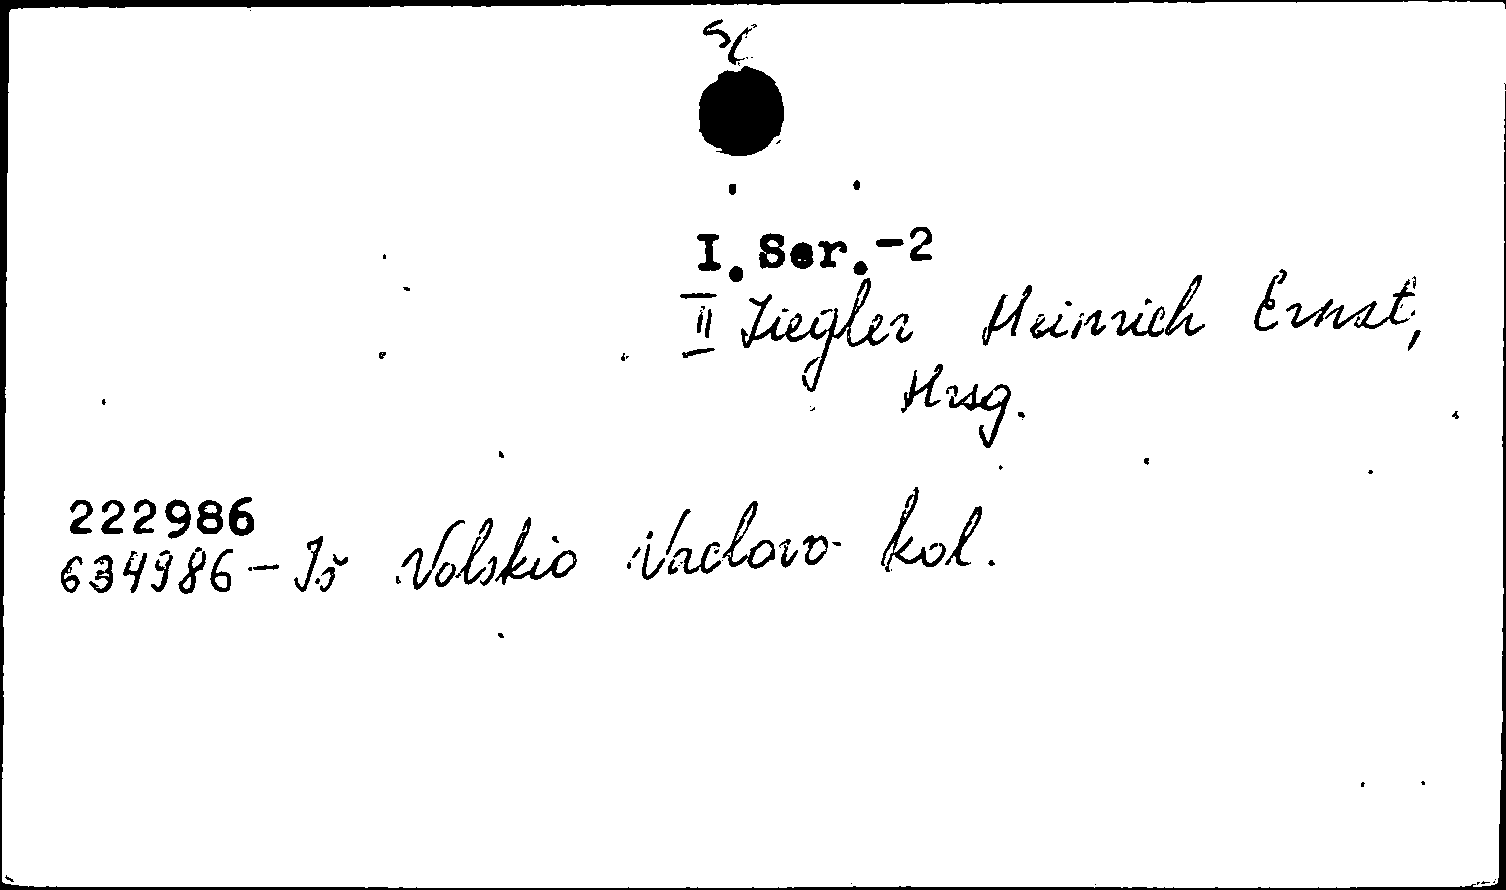 I.Ser.-2
II Ziegler Heinrich Ernst,
Hrsg.
222986
634986 - Iš Volskio Vaclovo kol.